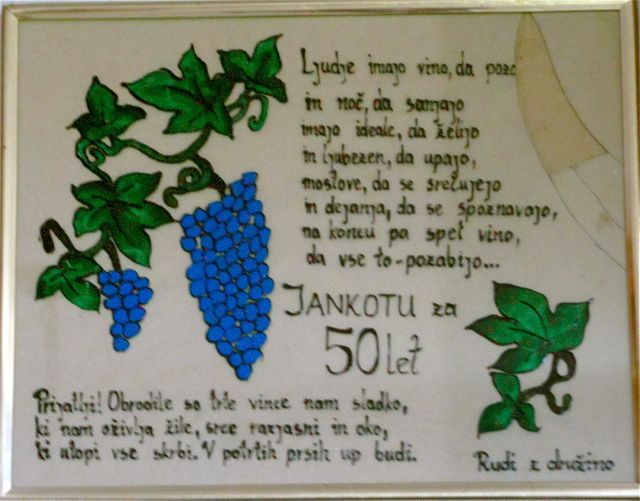 Ljudje imajo vino, da poza
in noč, da sanjajo
imajo ideale, da želijo
in ljubezen, da upajo,
mostove, da se srečujejo
in dejanja, da se spoznavajo,
na koncu pa spet vino,
da vse to-pozabijo...
JANKOTU za
50 let
Prijatlji! Obrodile so trte vince nam sladko,
ki nam oživlja žile, srce razjasni in oko,
ki utopi vse skrbi. V potrtih prsih up budi.
Rudi z družino